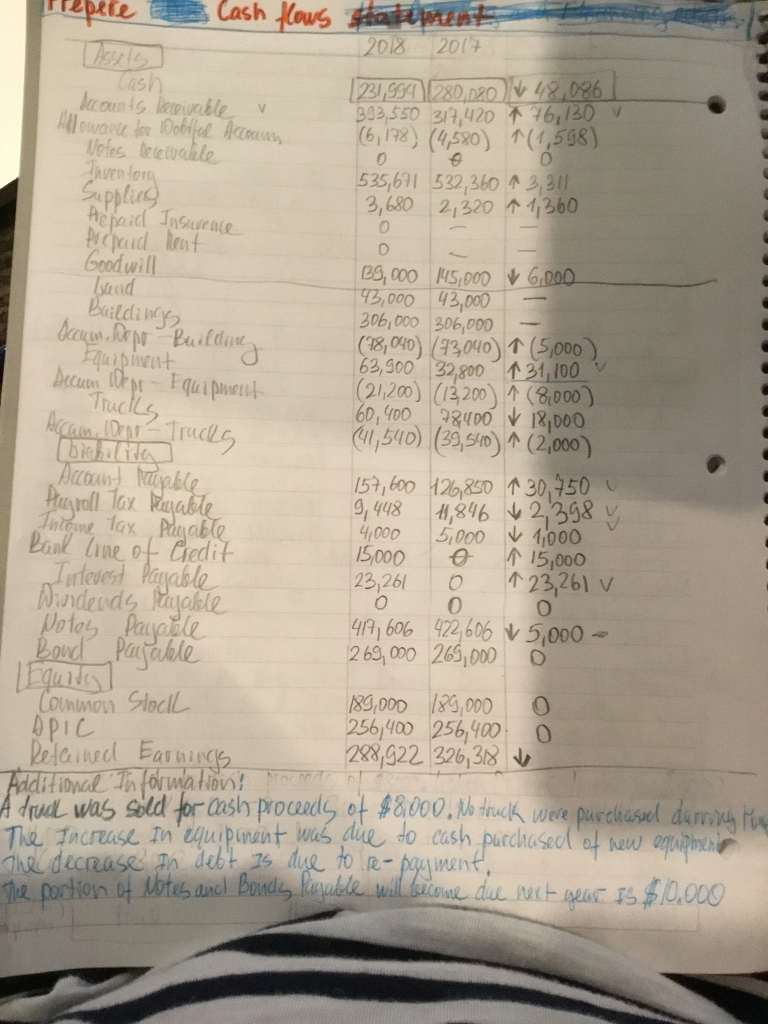 Prepere Cash flows statement
2018 2017
Assets
Cash 231,994 280,080 ↓ 48,086
Accounts Receivable v 393,550 317,420 ↑ 76,130 v
Allowance for Dobtful Accoum (6,178) (4,580) ↑ (1,598)
Notes Receivable 0 0 0
Inventory 535,671 532,360 ↑ 3,311
Supplies 3,680 2,320 ↑ 1,360
Prepaid Insurence 0 — —
Prepaid Rent 0 — —
Goodwill 139,000 145,000 ↓ 6,000
Land 43,000 43,000 —
Buildings 306,000 306,000 —
Accum. Depr - Building (78,040) (73,040) ↑ (5,000)
Equipment 63,900 32,800 ↑ 31,100 v
Accum Depr - Equipment (21,200) (13,200) ↑ (8,000)
Trucks 60,400 78400 ↓ 18,000
Accum. Depr - Trucks (41,540) (39,540) ↑ (2,000)
Liability
Account Payable 157,600 126,850 ↑ 30,750 v
Payroll Tax Payable 9,448 11,846 ↓ 2,398 v
Income Tax Payable 4,000 5,000 ↓ 1,000 v
Bank Line of Credit 15,000 0 ↑ 15,000
Interest Payable 23,261 0 ↑ 23,261 v
Dividends Payable 0 0 0
Notes Payable 417,606 422,606 ↓ 5,000 -
Bond Payable 269,000 269,000 0
Equity
Common Stock 189,000 189,000 0
APIC 256,400 256,400 0
Retained Earnings 288,922 326,318 ↓
Additional Information:
A truck was sold for cash proceeds of $8,000. No truck were purchased durring
The Increase In equipment was due to cash purchased of new equipment
The decrease In debt Is due to re-payment.
The portion of Notes and Bonds Payable will become due next year Is $10.000